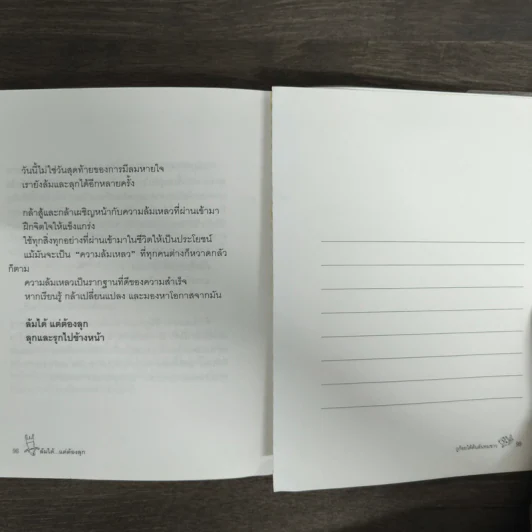 วันนี้ไม่ใช่วันสุดท้ายของการมีลมหายใจ
เรายังล้มและลุกได้อีกหลายครั้ง
กล้าสู้และกล้าเผชิญหน้ากับความล้มเหลวที่ผ่านเข้ามา
ฝึกจิตใจให้แข็งแกร่ง
ใช้ทุกสิ่งทุกอย่างที่ผ่านเข้ามาในชีวิตให้เป็นประโยชน์
แม้มันจะเป็น "ความล้มเหลว" ที่ทุกคนต่างก็หวาดกลัว
ก็ตาม
ความล้มเหลวเป็นรากฐานที่ดีของความสำเร็จ
หากเรียนรู้ กล้าเปลี่ยนแปลง และมองหาโอกาสจากมัน
ล้มได้ แต่ต้องลุก
ลุกและรุกไปข้างหน้า
ล้มได้...แต่ต้องลุก